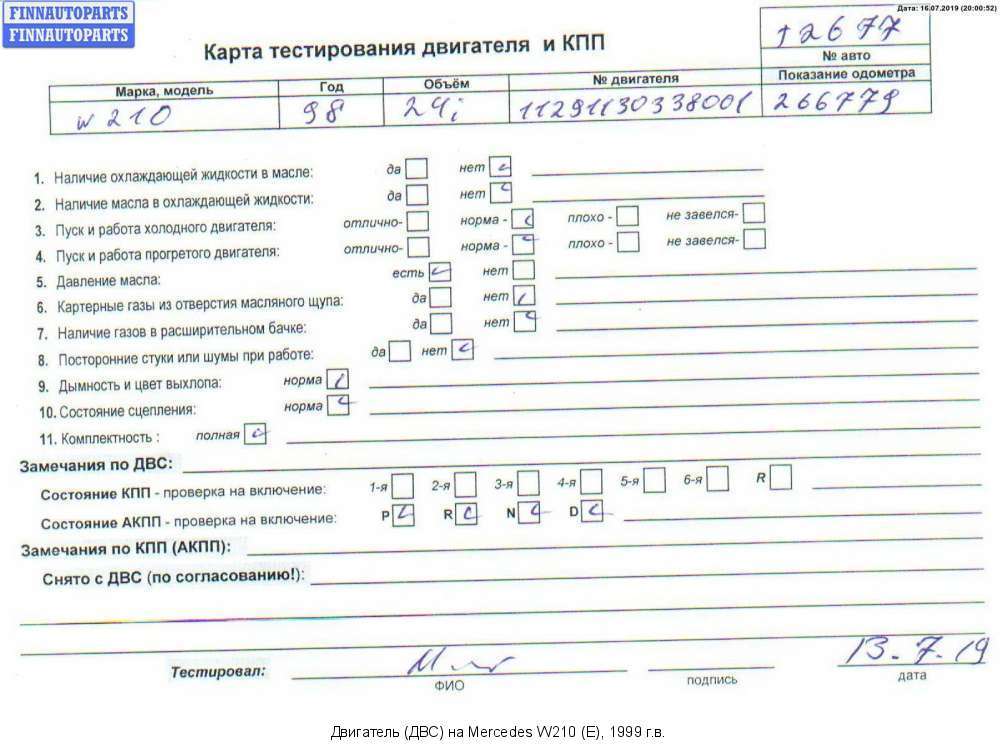 FINNAUTOPARTS
FINNAUTOPARTS
Дата: 16.07.2019 (20:00:52)
Карта тестирования двигателя и КПП
12677
№ авто
Марка, модель Год Объём № двигателя Показание одометра
w 210 98 24i 11291130338001 266779
1. Наличие охлаждающей жидкости в масле: да нет
2. Наличие масла в охлаждающей жидкости: да нет
3. Пуск и работа холодного двигателя: отлично- норма - плохо - не завелся-
4. Пуск и работа прогретого двигателя: отлично- норма - плохо - не завелся-
5. Давление масла: есть нет
6. Картерные газы из отверстия масляного щупа: да нет
7. Наличие газов в расширительном бачке: да нет
8. Посторонние стуки или шумы при работе: да нет
9. Дымность и цвет выхлопа: норма
10. Состояние сцепления: норма
11. Комплектность : полная
Замечания по ДВС:
Состояние КПП - проверка на включение: 1-я 2-я 3-я 4-я 5-я 6-я R
Состояние АКПП - проверка на включение: P R N D
Замечания по КПП (АКПП):
Снято с ДВС (по согласованию!):
13.7.19
Тестировал:
ФИО подпись дата
Двигатель (ДВС) на Mercedes W210 (E), 1999 г.в.